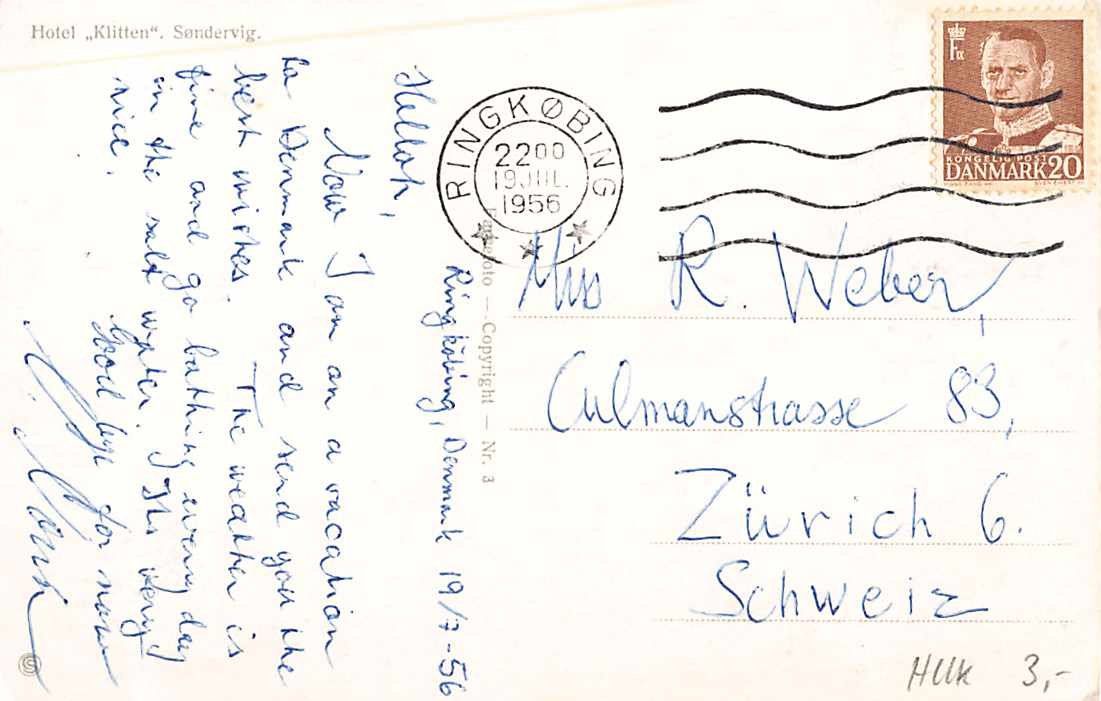 Hotel „Klitten“. Søndervig.
Ringkøbing, Denmark 19/7-56
Helloh,
Now I am on a vacation
to Denmark and send you the
best wishes. The weather is
fine and go bathing every day
in the salt water. Its very
nice.
Good bye for now
RINGKØBING
22 00
19.JUL.
1956
KONGELIG POST
DANMARK 20
Foto — Copyright — Nr. 3
Miss R. Weber,
Culmanstrasse 83,
Zürich 6.
Schweiz
3,-